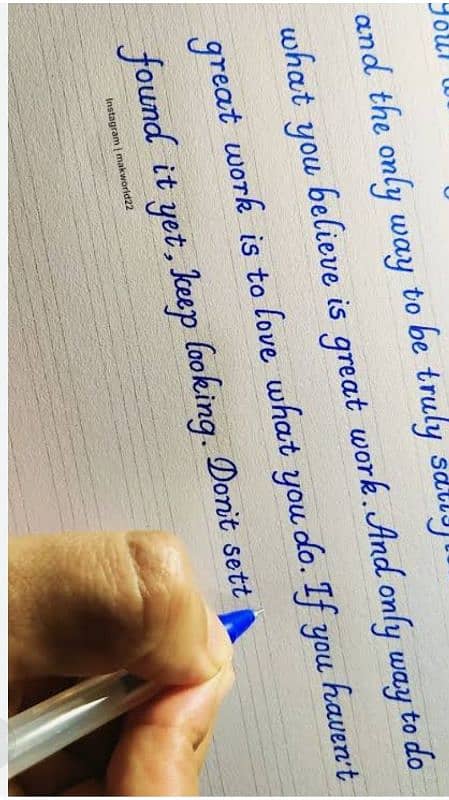 and the only way to be truly
what you believe is great work. And only way to do
great work is to love what you do. If you haven't
found it yet, keep looking. Don't sett
Instagram | makworld22